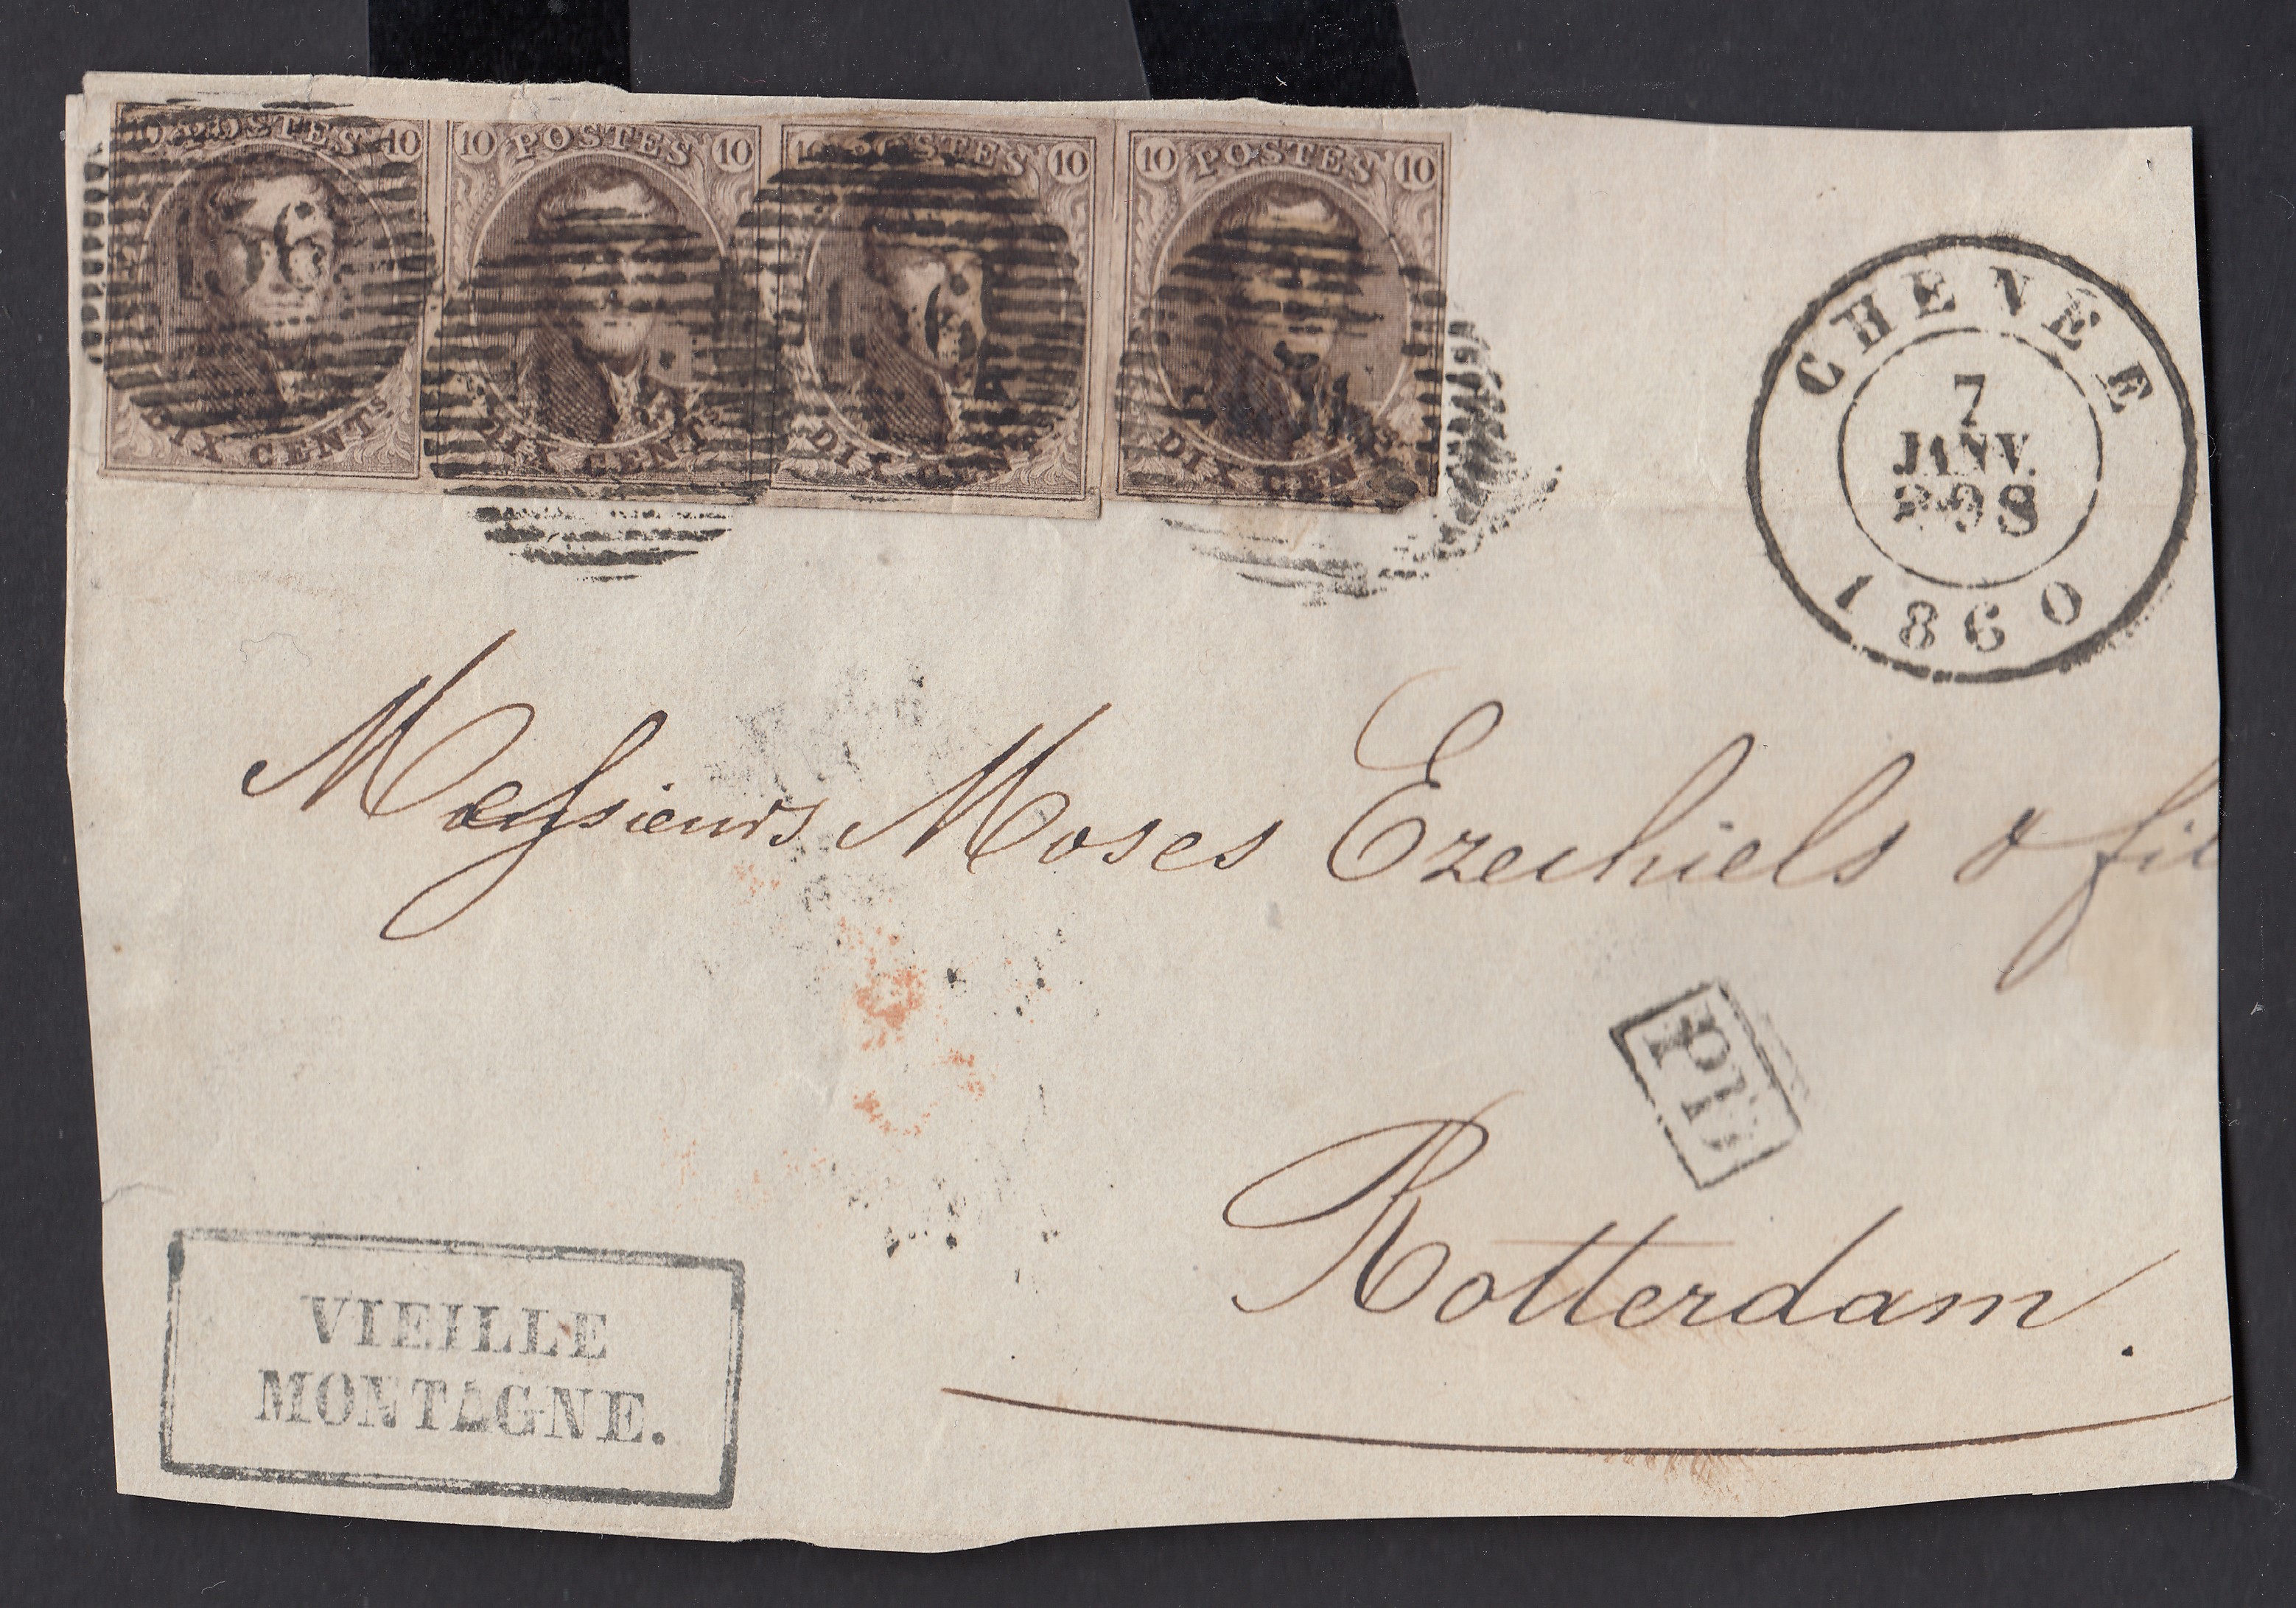 10 POSTES 10
DIX CENTS
10 POSTES 10
DIX CENTS
10 POSTES 10
DIX CENTS
10 POSTES 10
DIX CENTS
CHENÉE
7
JANV.
8
1860
Messieurs Moses Ezechiels & fils
PD
Rotterdam.
VIEILLE
MONTAGNE.